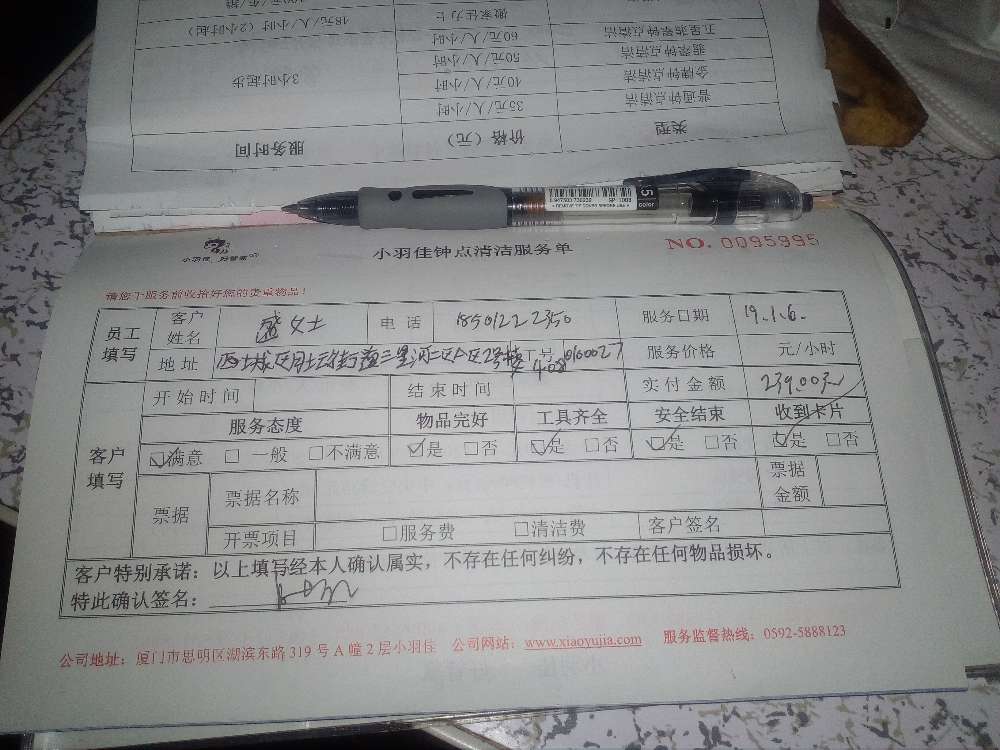 18元/人/小时（2小时起）
五星翡翠钟点清洁 60元/人/小时
翡翠钟点清洁 50元/人/小时
金牌钟点清洁 40元/人/小时 3小时起步
普通钟点清洁 35元/人/小时
类型 价格（元） 服务时间
5 color
SP-1003
小羽佳钟点清洁服务单 NO. 0095995
请您于服务前收拾好您的贵重物品！
员工填写 客户姓名 盛女士 电话 18501222350 服务日期 19.1.6.
地址 服务价格 元/小时
客户填写 开始时间 结束时间 实付金额 239.00元
服务态度 物品完好 工具齐全 安全结束 收到卡片
☑满意 □一般 □不满意 ☑是 □否 ☑是 □否 ☑是 □否 ☑是 □否
票据 票据名称 票据金额
开票项目 □服务费 □清洁费 客户签名
客户特别承诺：以上填写经本人确认属实，不存在任何纠纷，不存在任何物品损坏。
特此确认签名：
公司地址：厦门市思明区湖滨东路319号A幢2层小羽佳 公司网站：www.xiaoyujia.com 服务监督热线：0592-5888123